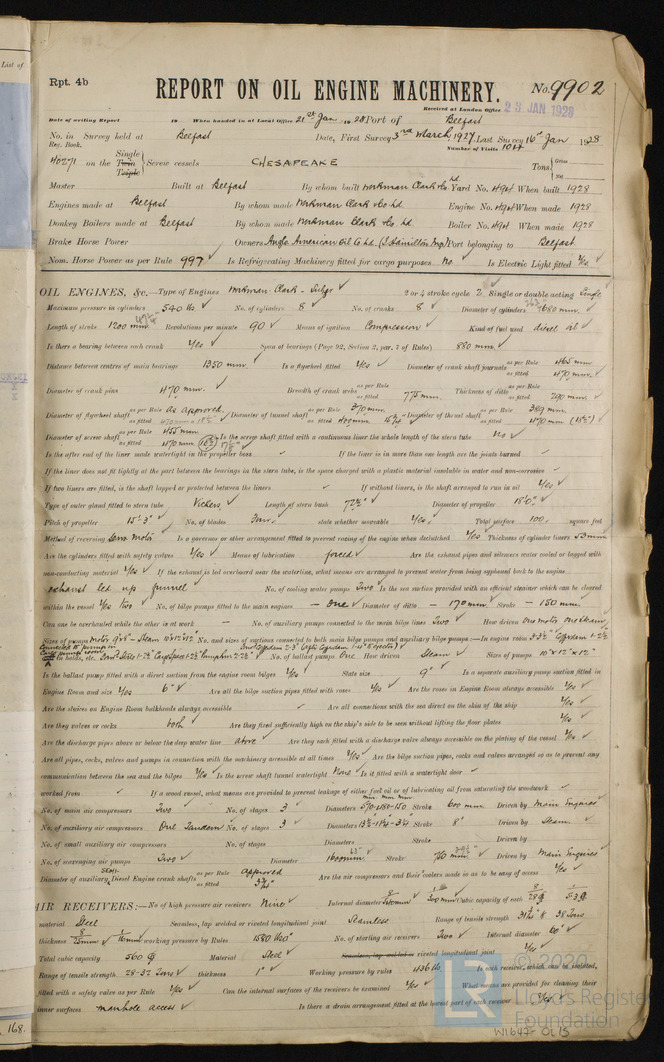 List of
Rpt. 4b
REPORT ON OIL ENGINE MACHINERY. No. 9902
Received at London Office 23 JAN 1928
Date of writing Report 19 When handed in at Local Office 21st Jan 1928 Port of Belfast
No. in Survey held at Belfast Date, First Survey 3rd March, 1927 Last Survey 16th Jan 1928
Reg. Book. Number of Visits 104
40271 on the Single Twin Triple Screw vessels CHESAPEAKE Tons Gross Net
Master Built at Belfast By whom built Workman Clark & Co Ltd. Yard No. 494 When built 1928
Engines made at Belfast By whom made Workman Clark & Co Ltd Engine No. 494 When made 1928
Donkey Boilers made at Belfast By whom made Workman Clark & Co Ltd Boiler No. 494 When made 1928
Brake Horse Power Owners Anglo American Oil Co Ltd (J. Hamilton Mgr) Port belonging to Belfast
Nom. Horse Power as per Rule 997 Is Refrigerating Machinery fitted for cargo purposes No Is Electric Light fitted Yes
OIL ENGINES, &c.—Type of Engines Workman-Clark - Sulzer 2 or 4 stroke cycle 2 Single or double acting Single
Maximum pressure in cylinders 540 lbs No. of cylinders 8 No. of cranks 8 Diameter of cylinders 680 mm.
Length of stroke 1200 mm. Revolutions per minute 90 Means of ignition Compression Kind of fuel used diesel oil
Is there a bearing between each crank Yes Span of bearings (Page 92, Section 2, par. 7 of Rules) 880 mm.
Distance between centres of main bearings 1350 mm. Is a flywheel fitted Yes Diameter of crank shaft journals as per Rule 465 mm as fitted 470 mm.
Diameter of crank pins 470 mm. Breadth of crank webs as per Rule as fitted 775 mm. Thickness of ditto as per Rule as fitted 290 mm.
Diameter of flywheel shaft as per Rule as approved. as fitted 470 mm = 18½" Diameter of tunnel shaft as per Rule 370 mm. as fitted 400 mm 15¾" Diameter of thrust shaft as per Rule 389 mm. as fitted 470 mm (18½")
Diameter of screw shaft as per Rule 455 mm. as fitted 470 mm (18½") Is the screw shaft fitted with a continuous liner the whole length of the stern tube No
Is the after end of the liner made watertight in the propeller boss If the liner is in more than one length are the joints burned
If the liner does not fit tightly at the part between the bearings in the stern tube, is the space charged with a plastic material insoluble in water and non-corrosive
If two liners are fitted, is the shaft lapped or protected between the liners If without liners, is the shaft arranged to run in oil Yes
Type of outer gland fitted to stern tube Vickers Length of stern bush 72½" Diameter of propeller 18'0"
Pitch of propeller 15'-3" No. of blades Four. state whether moveable Yes. Total surface 100. square feet
Method of reversing Servo Motor Is a governor or other arrangement fitted to prevent racing of the engine when declutched Yes Thickness of cylinder liners 53 mm
Are the cylinders fitted with safety valves Yes Means of lubrication forced Are the exhaust pipes and silencers water cooled or lagged with
non-conducting material Yes If the exhaust is led overboard near the waterline, what means are arranged to prevent water from being syphoned back to the engine
exhaust led up funnel No. of cooling water pumps Two Is the sea suction provided with an efficient strainer which can be cleared
within the vessel Yes two No. of bilge pumps fitted to the main engines - One Diameter of ditto - 170 mm. Stroke - 180 mm.
Can one be overhauled while the other is at work - No. of auxiliary pumps connected to the main bilge lines Two How driven One motor One steam
Sizes of pumps Motor 9"x8" - Steam 10"x12"x12" No. and sizes of suctions connected to both main bilge pumps and auxiliary bilge pumps:—In engine room 3-3½" Cofferdam 1-2½"
No. of ballast pumps One How driven Steam Sizes of pumps 10"x12"x12"
Is the ballast pump fitted with a direct suction from the engine room bilges Yes State size 9" Is a separate auxiliary pump suction fitted in
Engine Room and size Yes 6" Are all the bilge suction pipes fitted with roses Yes Are the roses in Engine Room always accessible Yes
Are the sluices on Engine Room bulkheads always accessible Are all connections with the sea direct on the skin of the ship Yes
Are they valves or cocks both Are they fixed sufficiently high on the ship's side to be seen without lifting the floor plates Yes
Are the discharge pipes above or below the deep water line above Are they each fitted with a discharge valve always accessible on the plating of the vessel Yes
Are all pipes, cocks, valves and pumps in connection with the machinery accessible at all times Yes Are the bilge suction pipes, cocks and valves arranged so as to prevent any
communication between the sea and the bilges Yes Is the screw shaft tunnel watertight None Is it fitted with a watertight door
worked from If a wood vessel, what means are provided to prevent leakage of either fuel oil or of lubricating oil from saturating the woodwork
No. of main air compressors Two No. of stages 3 Diameters 570-480-150 Stroke 600 mm Driven by Main Engines
No. of auxiliary air compressors One Tandem No. of stages 3 Diameters Stroke 8" Driven by Steam.
No. of small auxiliary air compressors No. of stages Diameters Stroke Driven by
No. of scavenging air pumps Two Diameter 1600 mm. Stroke 760 mm. Driven by Main Engines
Diameter of auxiliary SEMI-Diesel Engine crank shafts as per Rule approved as fitted 3¾" Are the air compressors and their coolers made so as to be easy of access Yes
AIR RECEIVERS:— No. of high pressure air receivers Nine Internal diameter Cubic capacity of each
material Steel Seamless, lap welded or riveted longitudinal joint Seamless Range of tensile strength
thickness working pressure by Rules No. of starting air receivers Two Internal diameter 60"
Total cubic capacity 560 Material Steel Seamless, lap welded or riveted longitudinal joint Yes
Range of tensile strength 28-32 Tons thickness 1" Working pressure by rules Is each receiver, which can be isolated,
fitted with a safety valve as per Rule Yes Can the internal surfaces of the receivers be examined Yes What means are provided for cleaning their
inner surfaces manhole access Is there a drain arrangement fitted at the lowest part of each receiver Yes
168.
© 2020
LR
Lloyd's Register
Foundation
W1647-0615